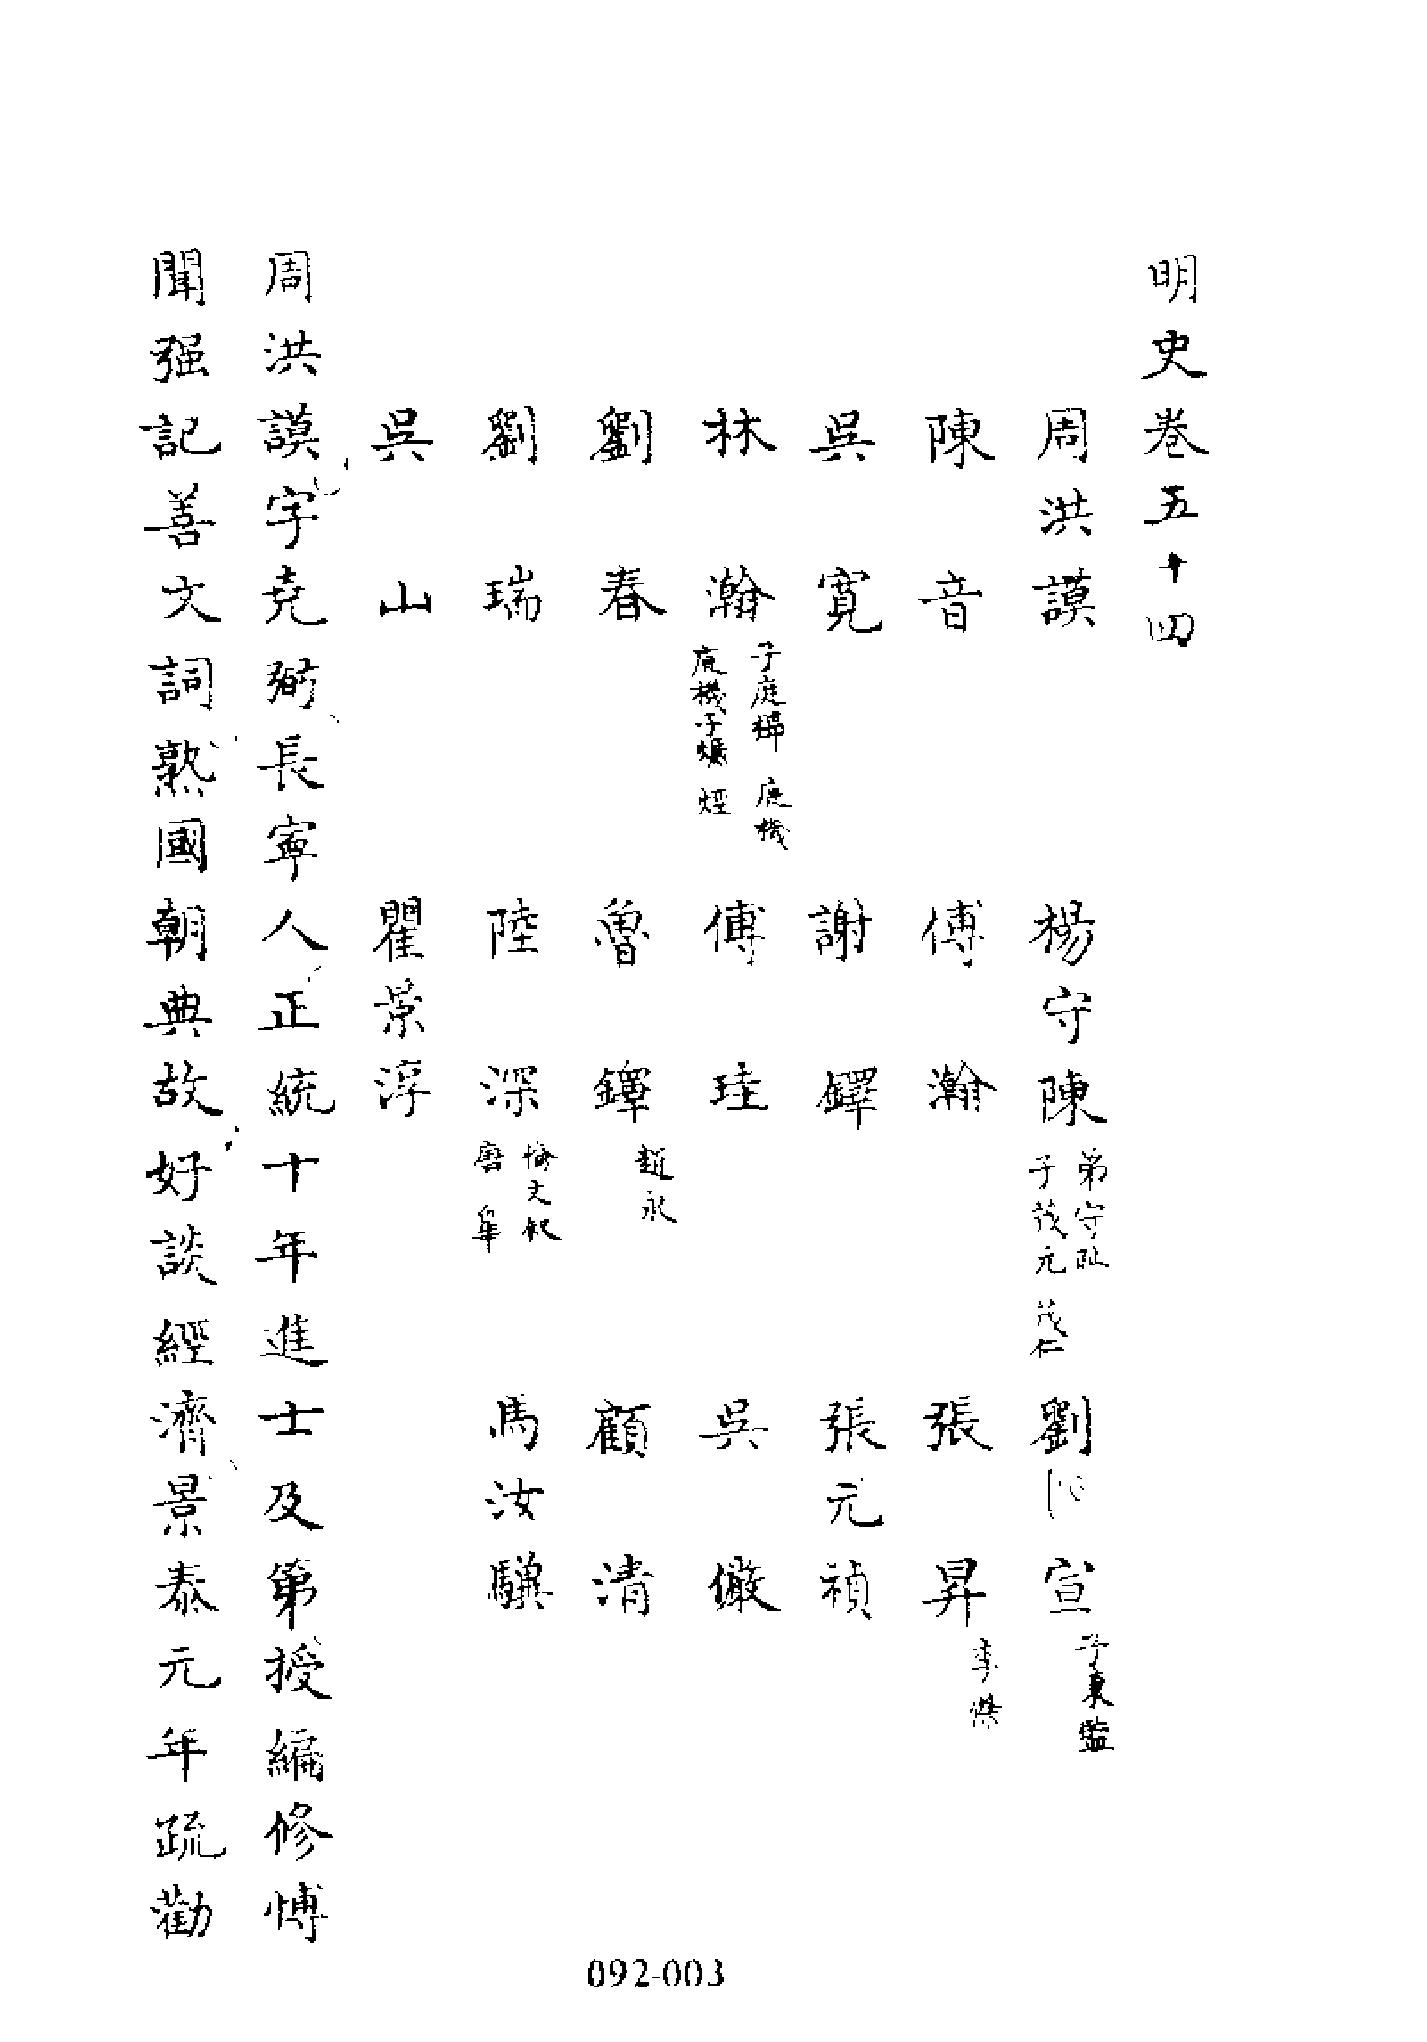 明史卷五十四
周洪謨 楊守陳 弟守阯 子茂元 茂仁 劉 宣 子秉監
陳音 傅瀚 張昇 李傑
吳寬 謝鐸 張元禎
林瀚 子庭㭿 庭機 庭機子燫 烴 傅珪 吳儼
劉春 魯鐸 趙永 顧清
劉瑞 陸深 梅文 唐皋 馬汝驥
吳山 瞿景淳
周洪謨字堯弼長寧人正統十年進士及第授編修博
聞强記善文詞熟國朝典故好談經濟景泰元年疏勸
092-003